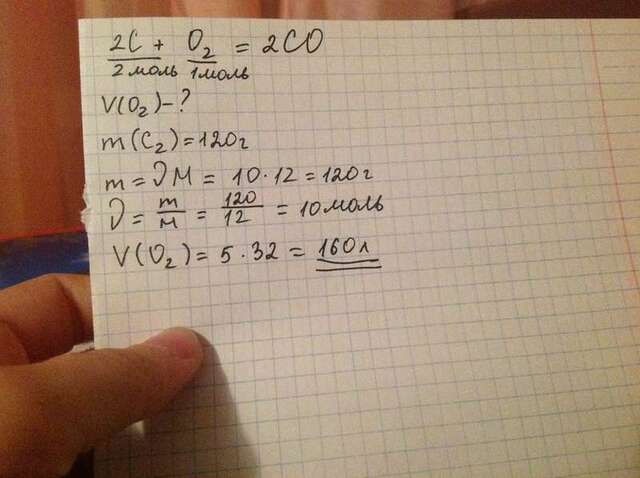 2C + O₂ = 2CO
2 моль 1 моль
V(O₂) - ?
m(C₂) = 120 г
m = νM = 10 · 12 = 120 г
ν = m/M = 120/12 = 10 моль
V(O₂) = 5 · 32 = 160 л